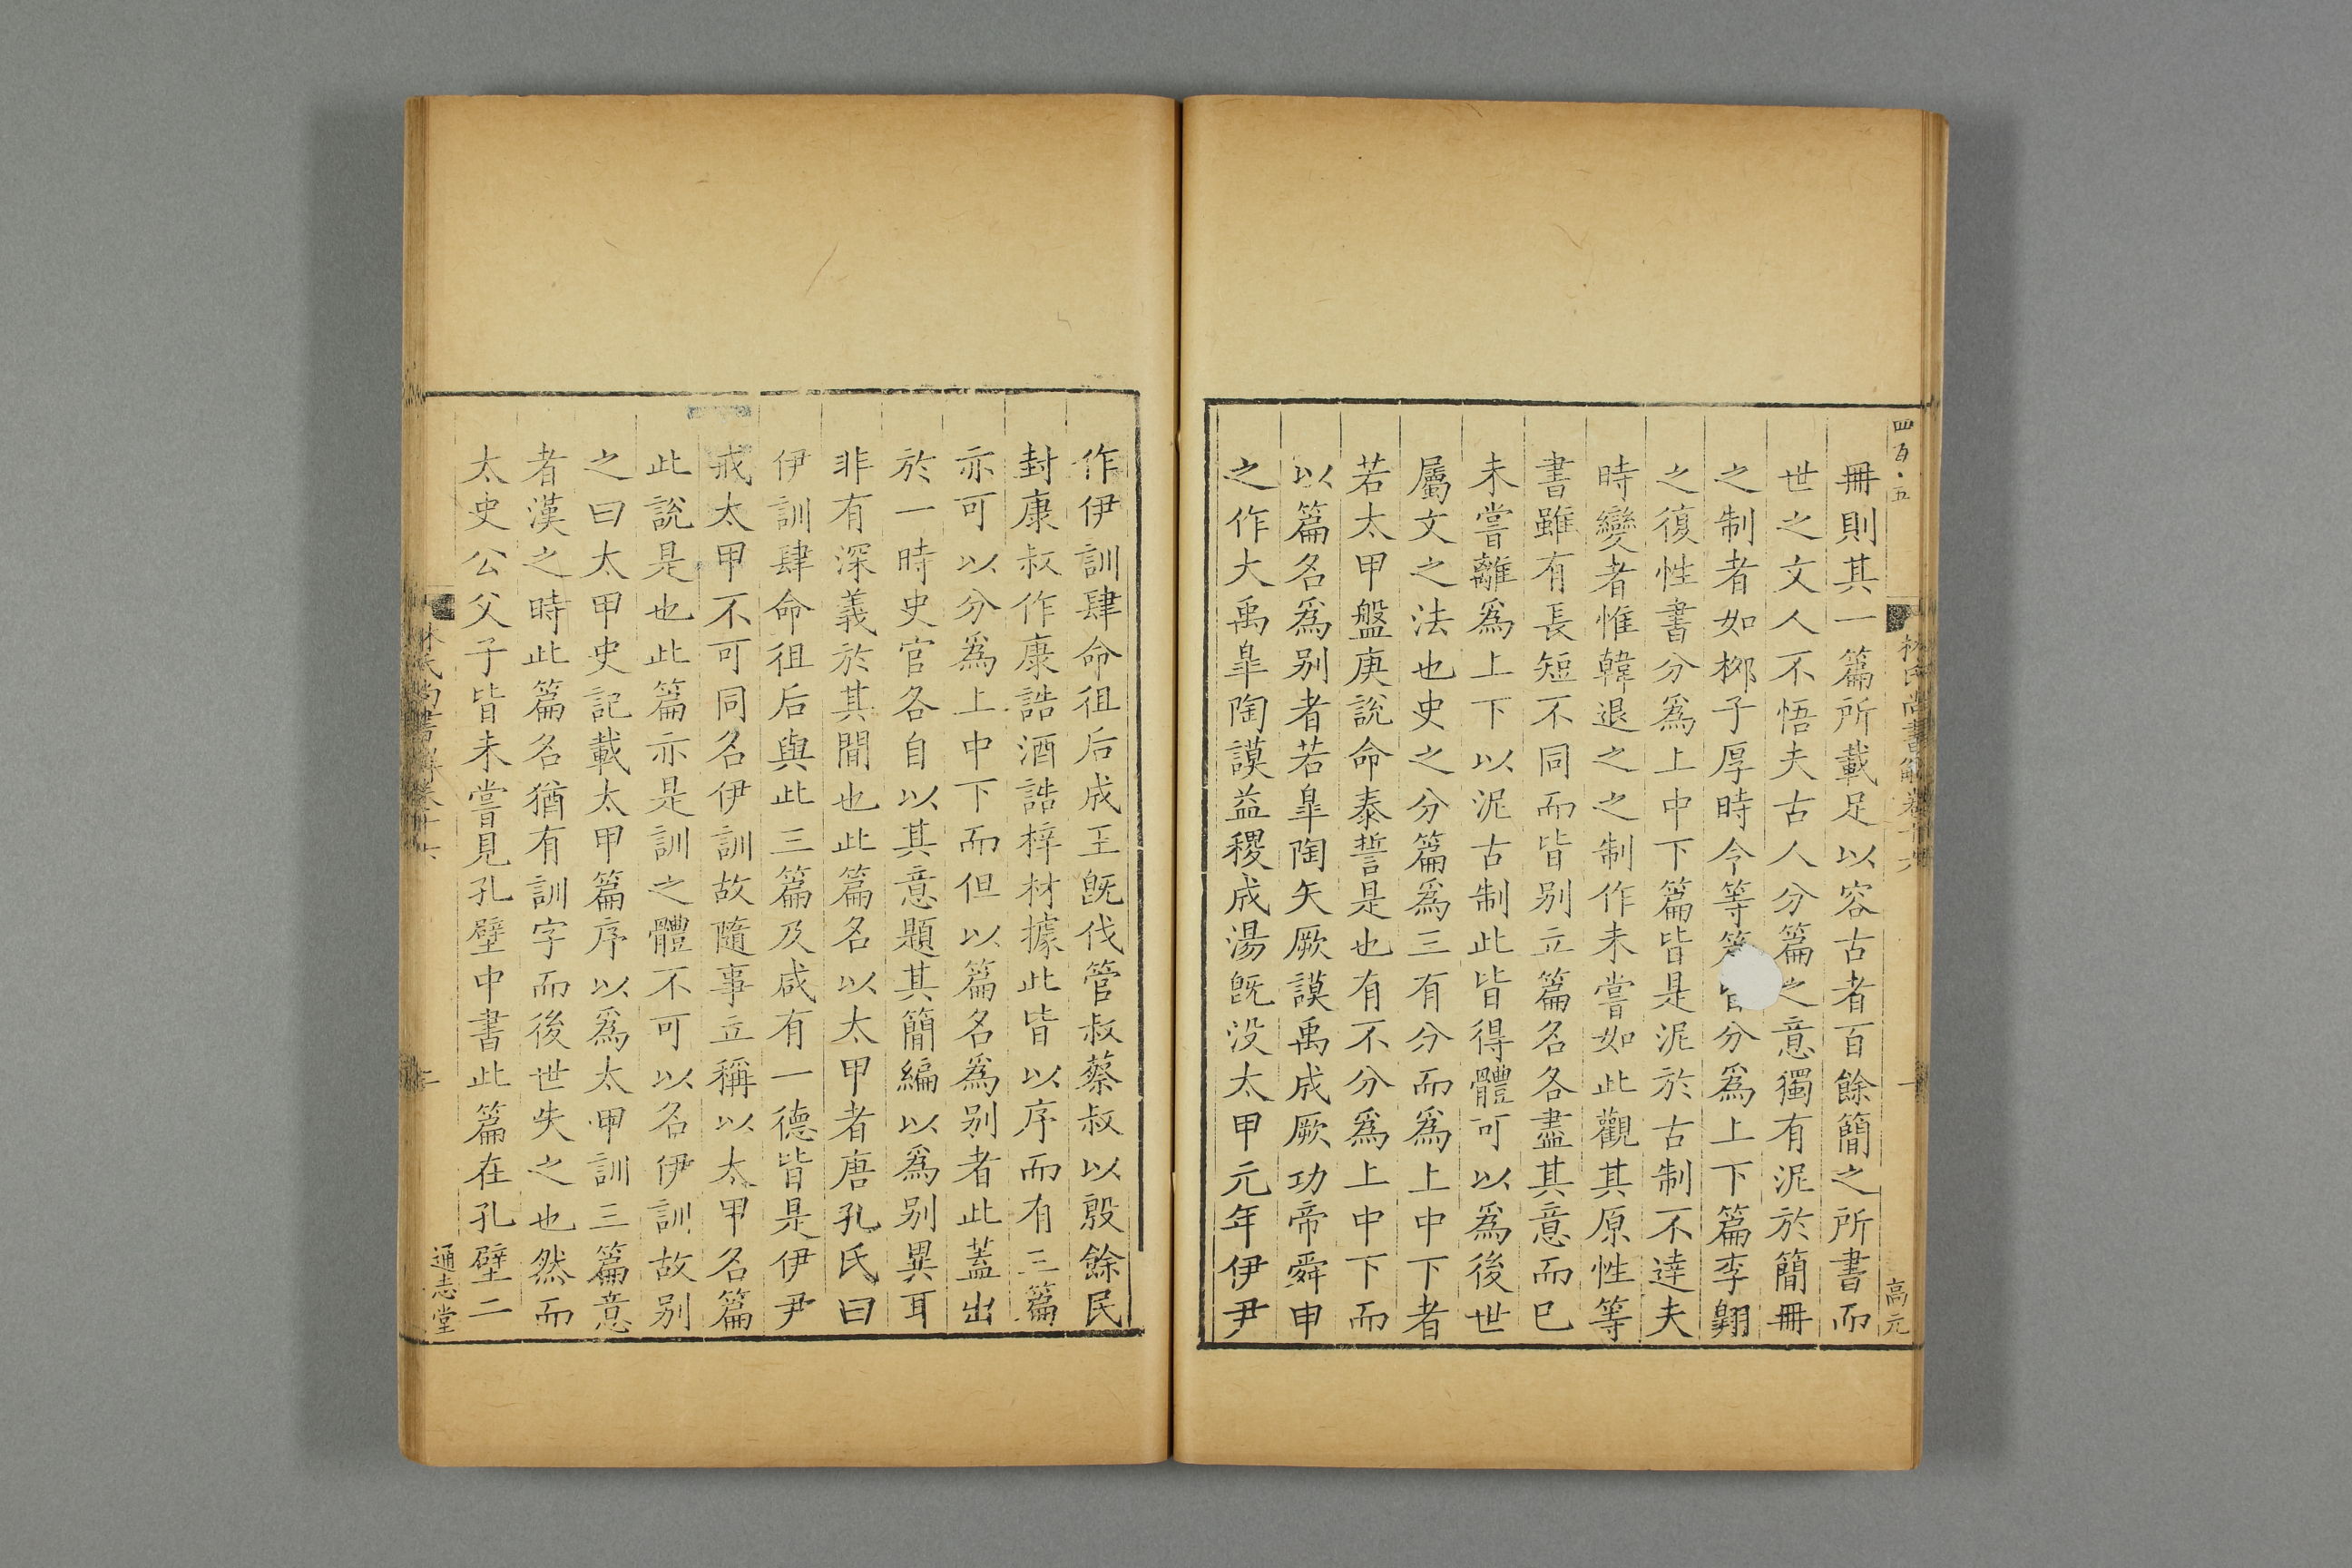 四百五
林氏尚書解卷十六
一
高元
冊則其一篇所載足以容古者百餘簡之所書而
世之文人不悟夫古人分篇之意獨有泥於簡冊
之制者如栁子厚時令等分爲上下篇李翺
之復性書分爲上中下篇皆是泥於古制不達夫
時變者惟韓退之之制作未嘗如此觀其原性等
書雖有長短不同而皆别立篇名各盡其意而巳
未嘗離爲上下以泥古制此皆得體可以爲後世
屬文之法也史之分篇爲三有分而爲上中下者
若太甲盤庚說命泰誓是也有不分爲上中下而
以篇名爲别者若臯陶矢厥謨禹成厥功帝舜申
之作大禹臯陶謨益稷成湯旣没太甲元年伊尹
作伊訓肆命徂后成王旣伐管叔蔡叔以殷餘民
封康叔作康誥酒誥梓材據此皆以序而有三篇
亦可以分爲上中下而但以篇名爲别者此蓋出
於一時史官各自以其意題其簡編以爲别異耳
非有深義於其間也此篇名以太甲者唐孔氏曰
伊訓肆命徂后與此三篇及咸有一德皆是伊尹
戒太甲不可同名伊訓故隨事立稱以太甲名篇
此說是也此篇亦是訓之體不可以名伊訓故别
之曰太甲史記載太甲篇序以爲太甲訓三篇意
者漢之時此篇名猶有訓字而後世失之也然而
太史公父子皆未嘗見孔壁中書此篇在孔壁二
林氏尚書解卷十六
二
通志堂